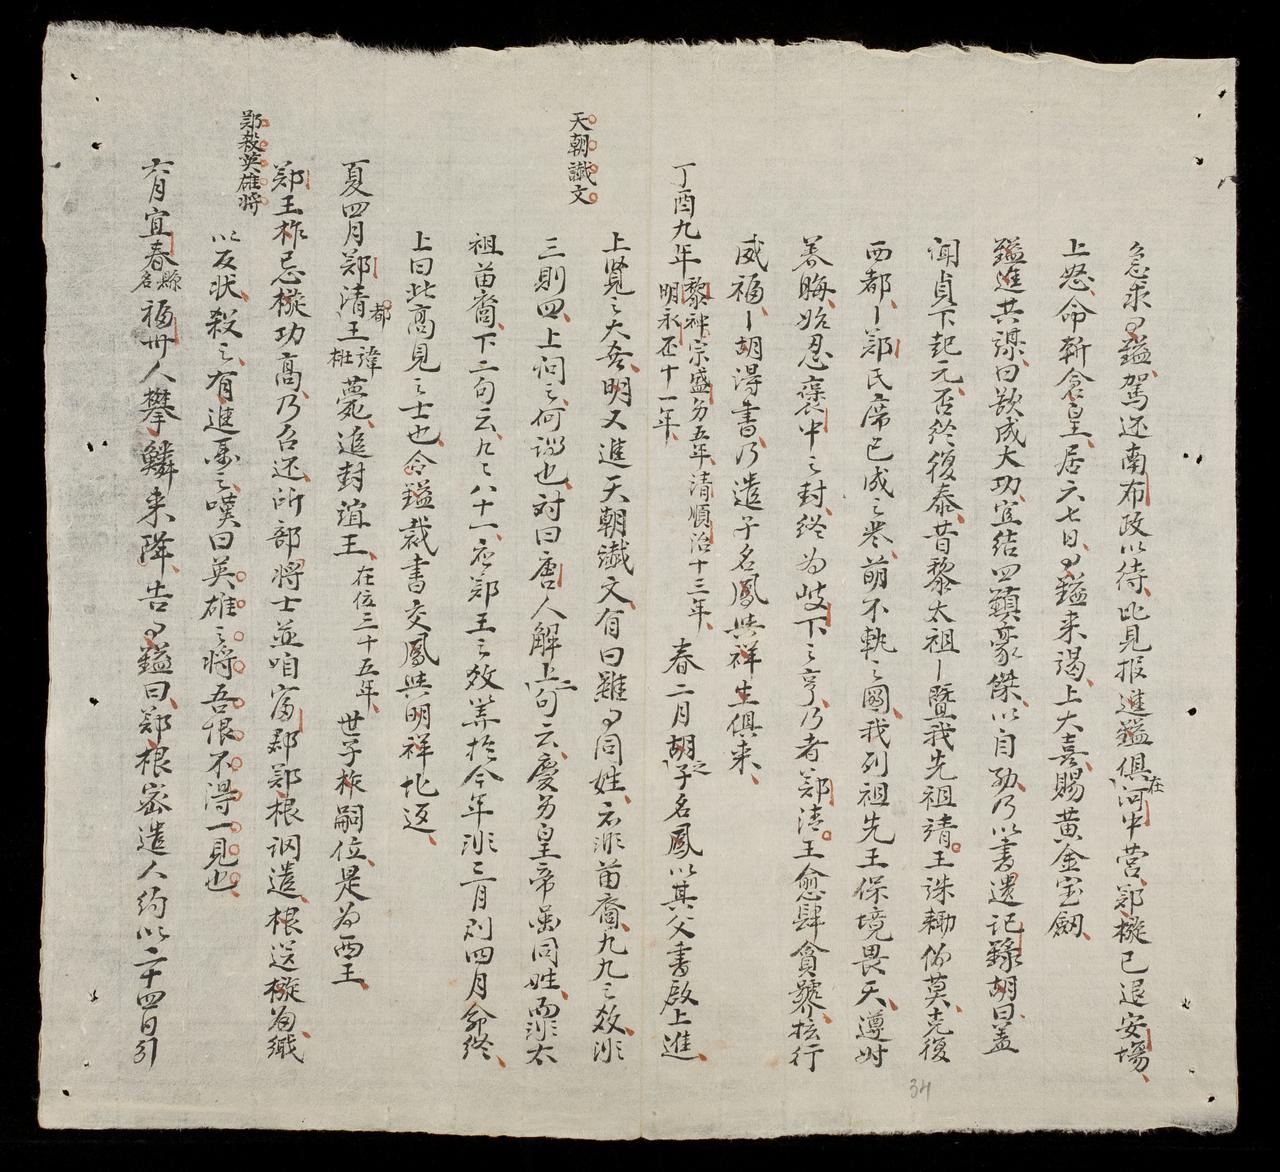 急求𫵻鎰駕还南布政以待比見报進鎰俱在河中营鄭樅已退安塲
上怒命斬倉皇居六七日𫵻鎰来謁上大喜賜黄金宝劒
鎰進共謀曰欲成大功宜结四鎮豪傑以自助乃以書遗记錄胡曰盖
闻貞下起元否終復泰昔黎太祖丨暨我先祖靖王誅鋤偽莫克復
西都丨鄭氏席已成之業萠不軌之圖我列祖先王保境畏天遵时
养晦始忍褒中之封终为岐下之亨乃者鄭清王愈肆貪嫪抂行
威福丨胡得書乃遣子名鳳與祥生俱来
丁酉九年黎神宗盛匇五年清順治十三年
明永丕十一年
春二月胡之子名鳳以其父書啟上進
天朝讖文
上賢之大咨明又進天朝讖文有曰雖𫵻同姓云非苗裔九九之数非
三則四上问之何謂也対曰唐人解上二句云慶匇皇帝虽同姓而非太
祖苗裔下二句云九之八十一应鄭王之数筭於今年非三月則四月命终
上曰此高見之士也令鎰裁書交鳳與明祥北返
夏四月鄭清都王諱梉薨追封誼王在位三十五年世子柞嗣位是为西王
鄭殺英雄将
鄭王柞忌樅功高乃召还所部将士並咱富郡鄭根调遣根送樅为織
以反状殺之有進禹之嘆曰英雄之将吾恨不得一見也
六月宜春縣名福州人攀鱗来降告𫵻鎰曰鄭根密遣人約以二十四日引
34